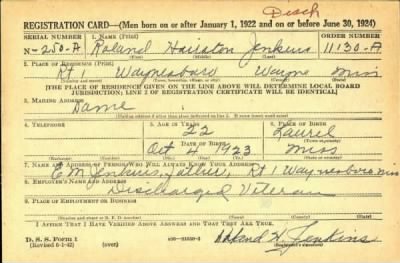 Disch
REGISTRATION CARD—(Men born on or after January 1, 1922 and on or before June 30, 1924)
SERIAL NUMBER 1. NAME (Print) ORDER NUMBER
N-250-A Roland Hairston Jenkins 11130-A
2. PLACE OF RESIDENCE (Print)
Rt 1 Waynesboro Wayne Miss
[THE PLACE OF RESIDENCE GIVEN ON THE LINE ABOVE WILL DETERMINE LOCAL BOARD
JURISDICTION; LINE 2 OF REGISTRATION CERTIFICATE WILL BE IDENTICAL]
3. MAILING ADDRESS
Same
[Mailing address if other than place indicated on line 2. If same insert word same]
4. TELEPHONE 5. AGE IN YEARS 6. PLACE OF BIRTH
22 Laurel
DATE OF BIRTH
Oct 4 1923 Miss
7. NAME AND ADDRESS OF PERSON WHO WILL ALWAYS KNOW YOUR ADDRESS
E M Jenkins, father, Rt 1 Waynesboro Miss
8. EMPLOYER'S NAME AND ADDRESS
Discharged Veteran
9. PLACE OF EMPLOYMENT OR BUSINESS
(Number and street or R. F. D. number) (Town) (County) (State)
I AFFIRM THAT I HAVE VERIFIED ABOVE ANSWERS AND THAT THEY ARE TRUE.
D. S. S. Form 1
(Revised 6-1-42) (over) Roland H. Jenkins
(Registrant's signature)